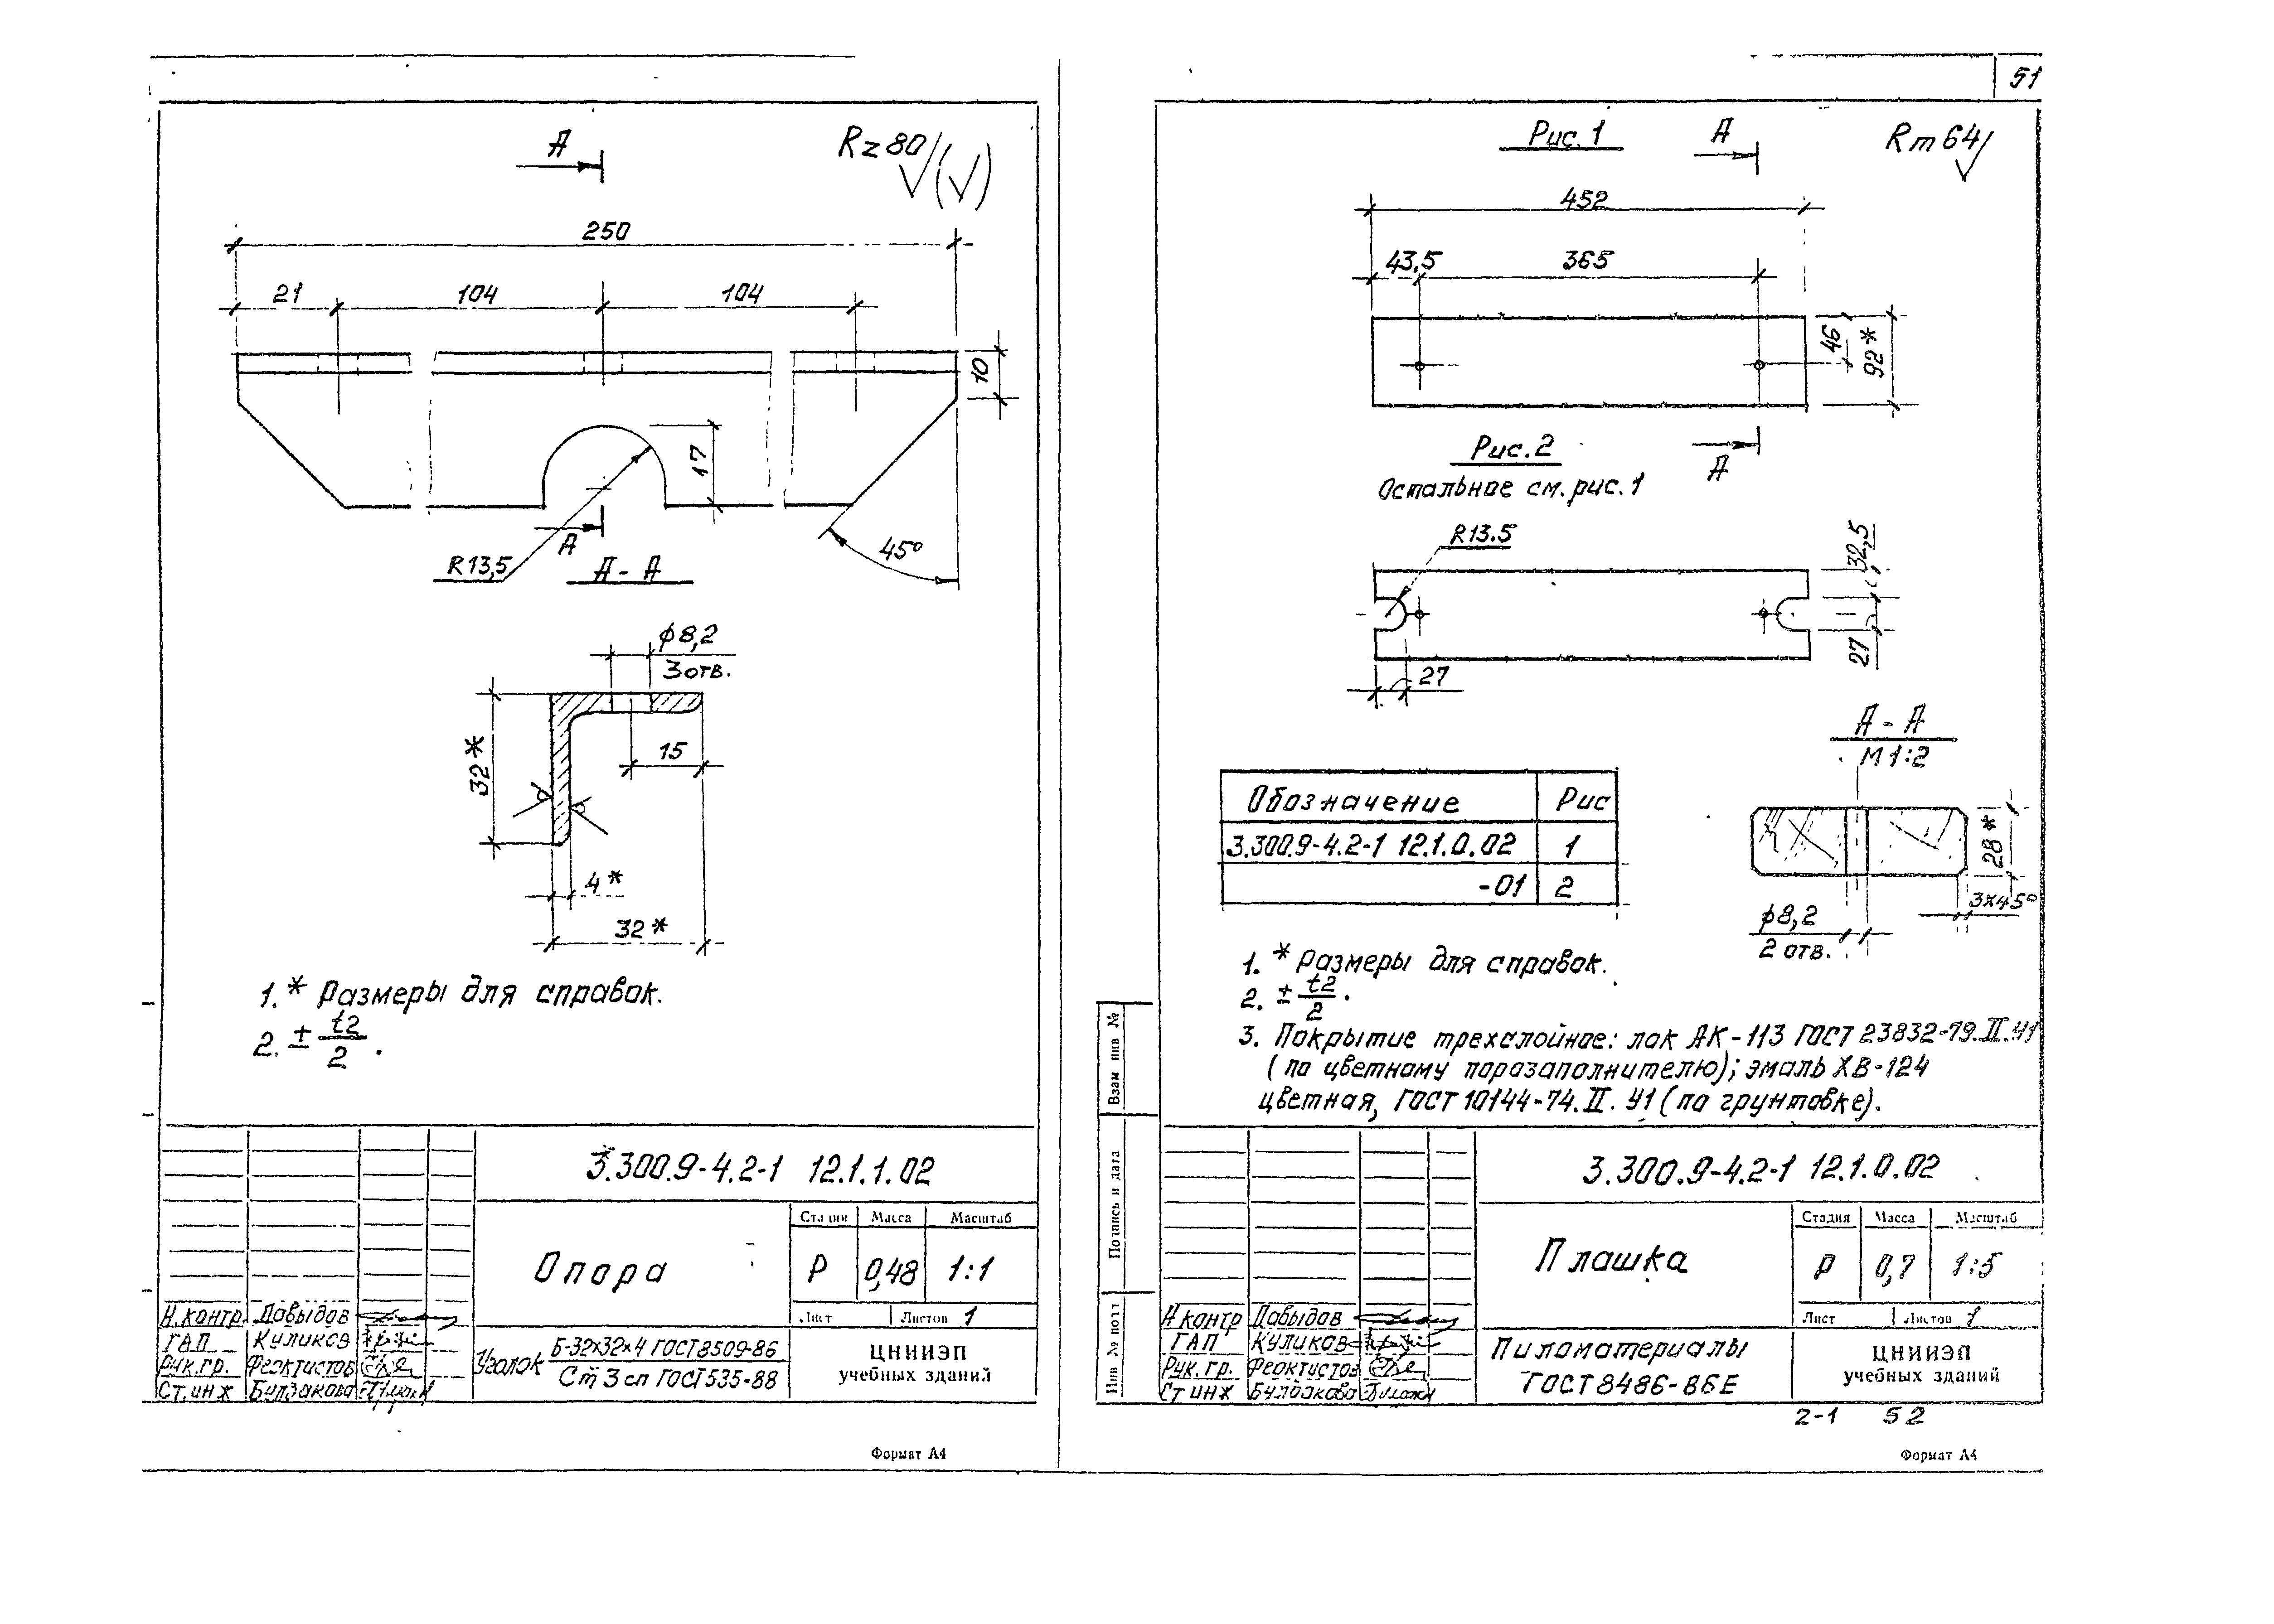 А
Rz80 (√)
250
21 104 104
10
17
45°
А
R13,5
А-А
ϕ8,2
3отв.
32*
15
4*
32*
1.* Размеры для справок.
2. ± t2/2.
3.300.9-4.2-1 12.1.1.02
Опора
Стадия Масса Масштаб
Р 0,48 1:1
Лист Листов 1
Н.контр. Давыдов
ГАП Куликов
Рук.гр. Феоктистов
Ст.инж
Уголок Б-32х32х4 ГОСТ8509-86
Ст 3 сп ГОСТ535-88
ЦНИИЭП
учебных зданий
Формат А4
51
Рис.1
А
Rm64
452
43,5 365
46
92*
Рис.2
А
Остальное см. рис.1
R13.5
32,5
27
27
А-А
М1:2
28*
3х45°
ϕ8,2
2 отв.
Обозначение Рис
3.300.9-4.2-1 12.1.0.02 1
-01 2
1. * Размеры для справок.
2. ± t2/2.
3. Покрытие трехслойное: лак АК-113 ГОСТ 23832-79.II.У1
(по цветному порозаполнителю); эмаль ХВ-124
цветная, ГОСТ 10144-74.II.У1 (по грунтовке).
Взам инв №
Подпись и дата
Инв № подл
3.300.9-4.2-1 12.1.0.02
Плашка
Стадия Масса Масштаб
Р 0,7 1:5
Лист Листов 1
Н контр Давыдов
ГАП Куликов
Рук.гр. Феоктистов
Ст инж
Пиломатериалы
ГОСТ8486-86Е
ЦНИИЭП
учебных зданий
2-1 52
Формат А4